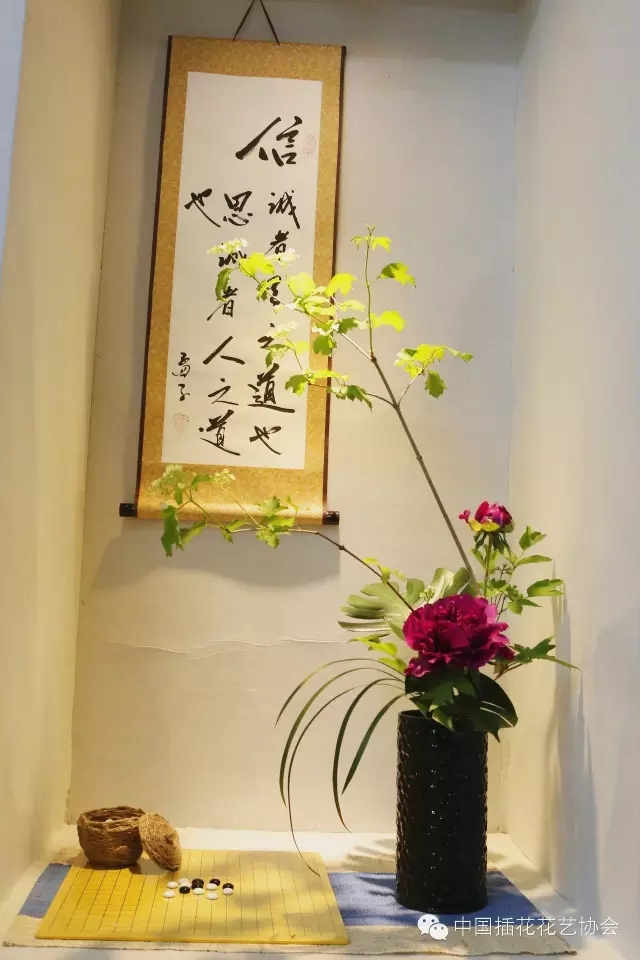 信
诚者天之道也
思诚者人之道
也
孟子
中国插花花艺协会